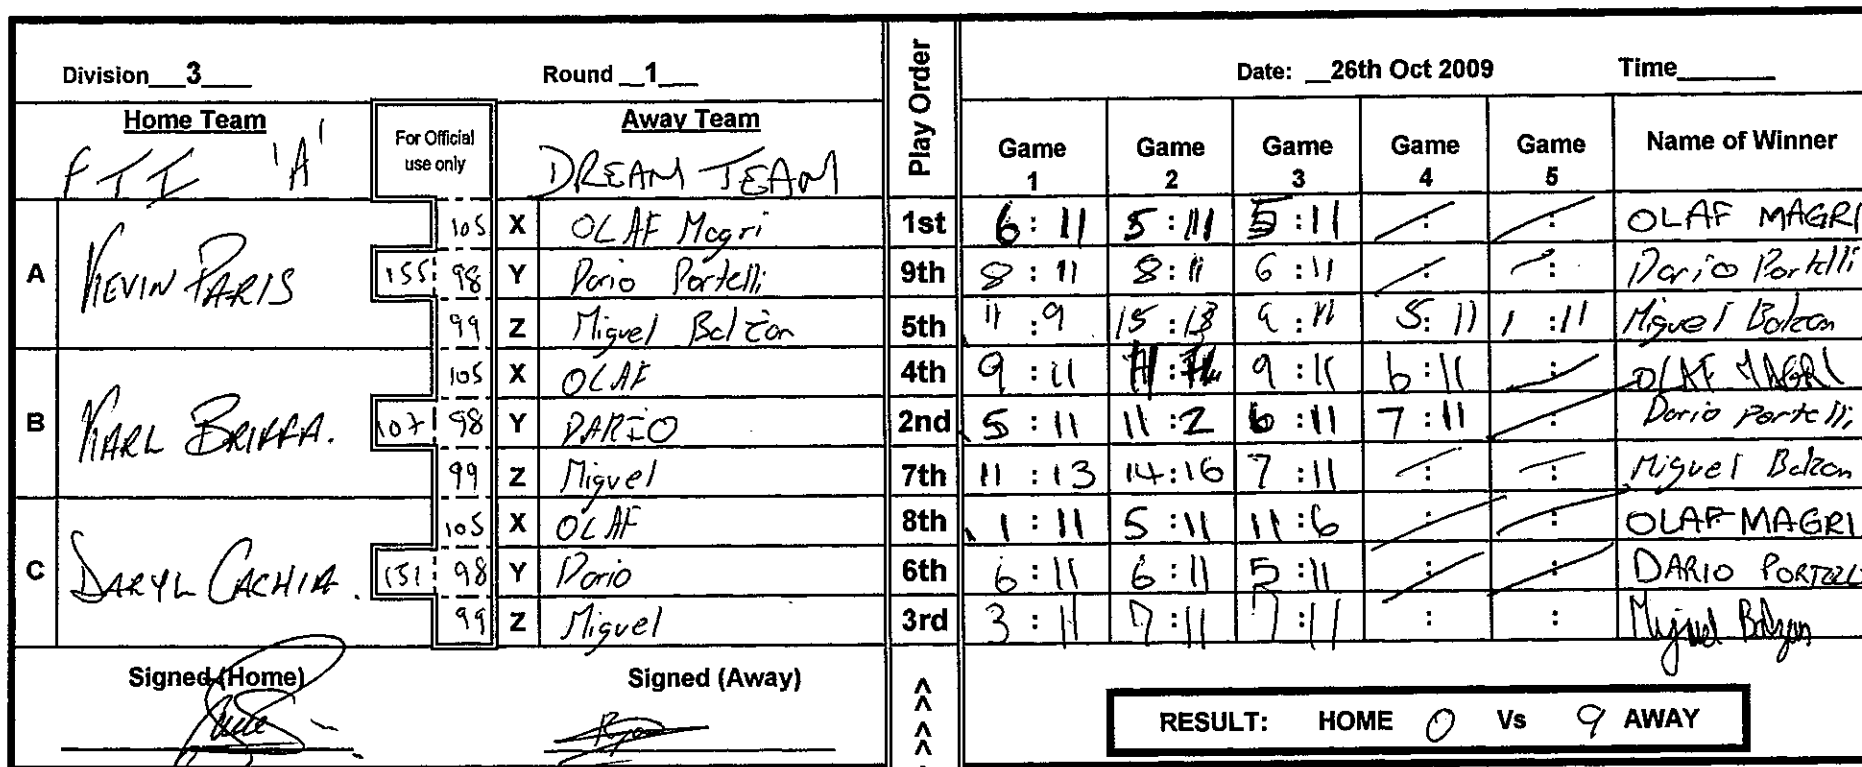 Division 3 Round 1 Play Order Date: 26th Oct 2009 Time
Home Team For Official use only Away Team Game 1 Game 2 Game 3 Game 4 Game 5 Name of Winner
FTI 'A' DREAM TEAM
A KEVIN PARIS 105 X OLAF Magri 1st 6 : 11 5 : 11 5 : 11 : : OLAF MAGRI
155 98 Y Dario Portelli 9th 8 : 11 8 : 11 6 : 11 : : Dario Portelli
99 Z Miguel Balzan 5th 11 : 9 15 : 13 9 : 11 5 : 11 1 : 11 Miguel Balzan
B KARL BRIFFA. 105 X OLAF 4th 9 : 11 : 9 : 11 6 : 11 : OLAF MAGRI
107 98 Y DARIO 2nd 5 : 11 11 : 2 6 : 11 7 : 11 : Dario Portelli
99 Z Miguel 7th 11 : 13 14 : 16 7 : 11 : : Miguel Balzan
C DARYL CACHIA. 105 X OLAF 8th 1 : 11 5 : 11 11 : 6 : : OLAF MAGRI
151 98 Y Dario 6th 6 : 11 6 : 11 5 : 11 : : DARIO PORTELLI
99 Z Miguel 3rd 3 : 11 7 : 11 7 : 11 : : Miguel Balzan
Signed (Home) Signed (Away) >>>> RESULT: HOME 0 Vs 9 AWAY